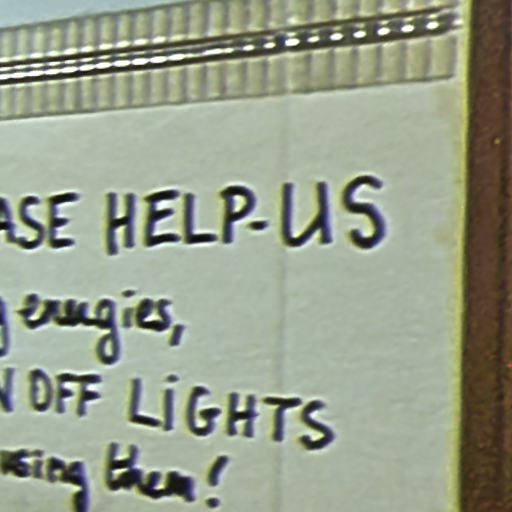 ASE HELP-US
g enugies,
N OFF LiGHTS
using them!